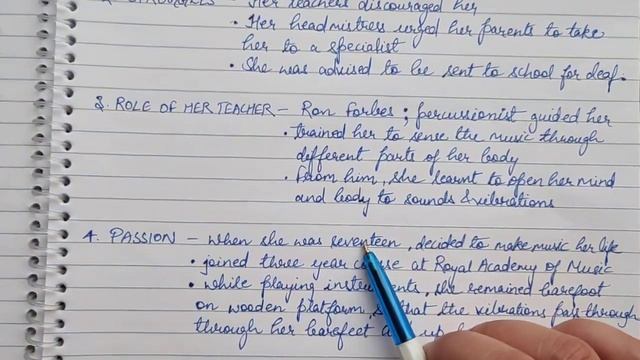 Her teachers discouraged her
• Her headmistress urged her parents to take
her to a specialist
• She was advised to be sent to school for deaf.
3. ROLE OF HER TEACHER - Ron Forbes ; percussionist guided her
• trained her to sense the music through
different parts of her body
• From him, she learnt to open her mind
and body to sounds & vibrations
4. PASSION - When she was seventeen, decided to make music her life
• joined three year course at Royal Academy of Music
• while playing instruments, she remained barefoot
on wooden platform, so that the vibrations pass through
through her barefeet up